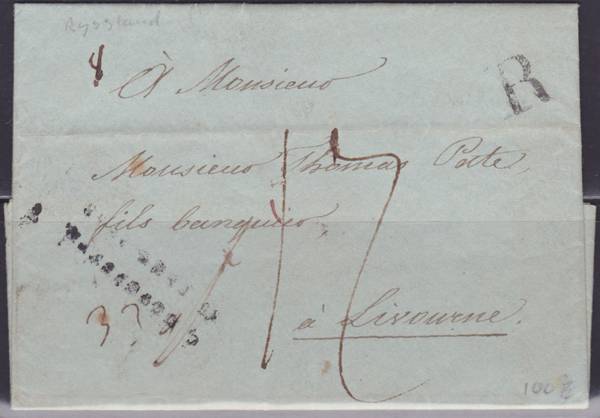 Ryssland
R
À Monsieur
Monsieur Thomas Pate
fils banquier,
17
à Livourne.
100